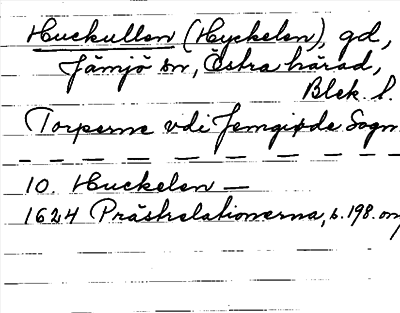 Huckullen (Hyckelen), gd,
Jämjö sn, Östra härad,
Blek. l.
Torperne vdi Jemgiøde Sogn
10. Huckelen —
1624 Prästrelationerna, s. 198.